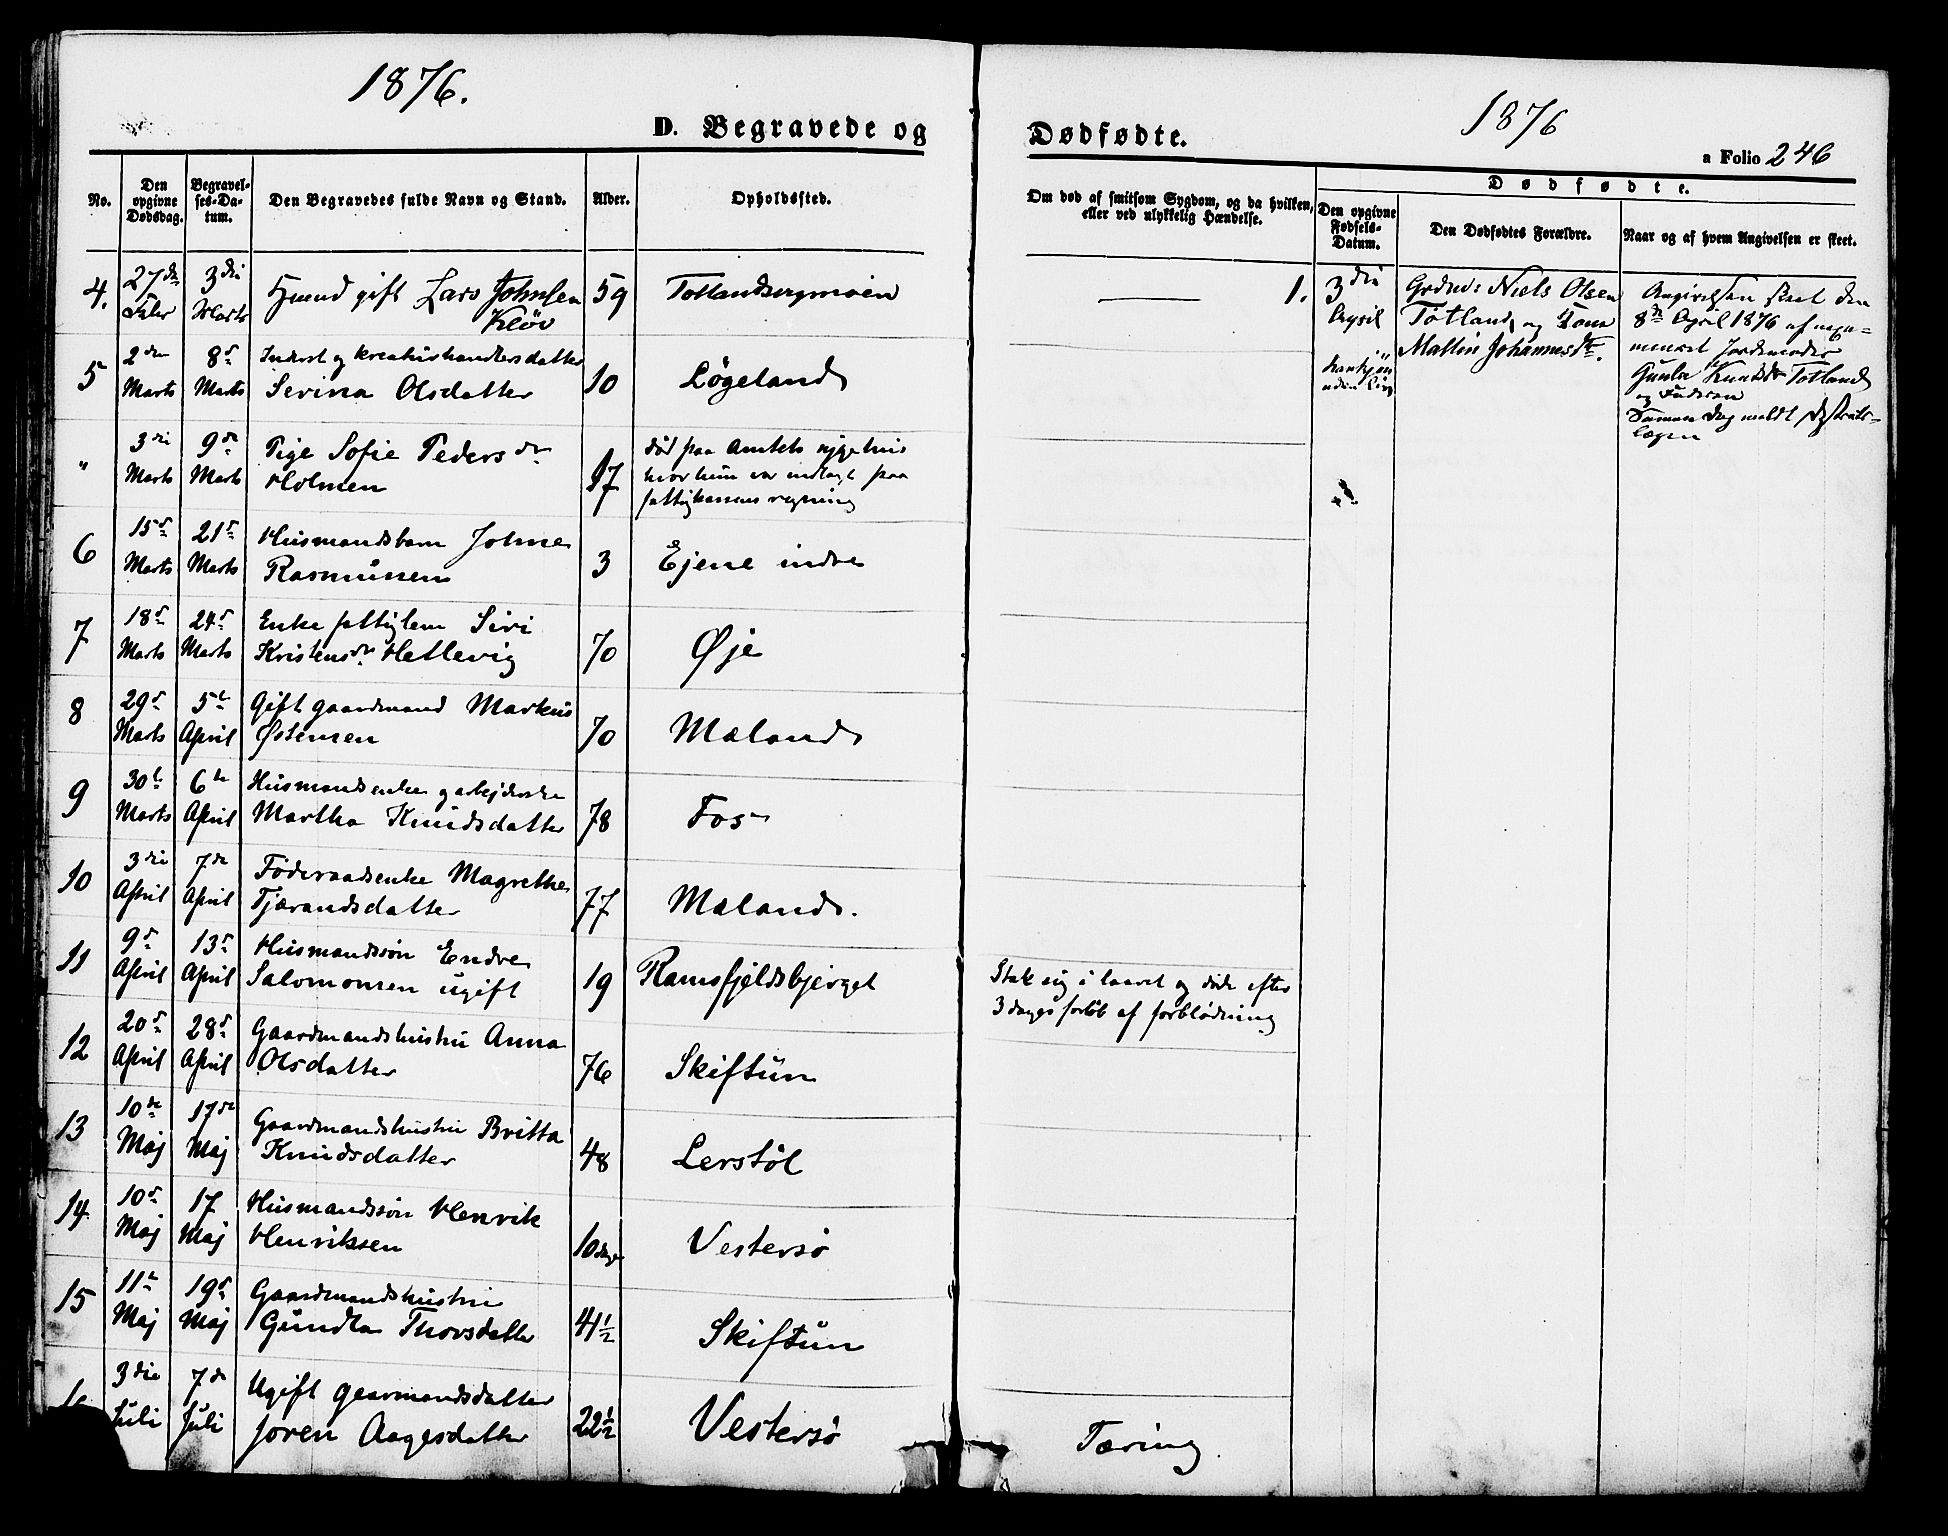 1876.
D. Begravede og
No.
Den opgivne Dødsdag.
Begravelses-Datum.
Den Begravedes fulde Navn og Stand.
Alder.
Opholdssted.
4. 27de 3die gift Lars Johnsen 59
Febr Marts Kløv
5 2den 8d Inderst og kreaturhandlersdatter 10 Løgeland
Marts Marts Serina Olsdatter
" 3die 9de Pige Sofie Pedersdr 17 død paa Amtets sygehus
Marts Marts Holmen hvor hun var indlagt paa
fattigkassens regning
6 15d 21d Husmandsbarn Johne 3 Ejene indre
Marts Marts Rasmussen
7 18d 24d Enke fattiglem Siri 70 Øje
Marts Marts Kristensdr Hetlevig
8 29d 5te Gift gaardmand Markus 70 Mæland
Marts April Østensen
9 30te 6te Husmandsenke og arbejderske 78 Fos
Marts April Martha Knudsdatter
10 3die 7de Føderaadsenke Magrethe 77 Mæland.
April April Tjærandsdatter
11 9d 13d Husmandssøn Endre 19 Ramsfjeldsbjerget
April April Salomonsen ugift
12 20d 28d Gaardmandshustru Anna 76 Skiftun
April April Olsdatter
13 10de 17de Gaardmandshustru Britta 48 Lerstøl
Maj Maj Knudsdatter
14 10d 17 Husmandssøn Henrik 10 dage Vestersø
Maj Maj Henriksen
15 11te 19d Gaardmandshustru 41½ Skiftun
Maj Maj Gundla Thorsdatter
3die 7de Ugift gaarmandsdatter 22½ Vestersø
Juli Juli Joren Aagesdatter
1876
Dødfødte.
a Folio 246
Om død af smitsom Sygdom, og da hvilken,
eller ved ulykkelig Hændelse.
Dødfødte.
Den opgivne Fødsels-Datum.
Den Dødfødtes Forældre.
Naar og af hvem Angivelsen er skeet.
1. 3die Grdmd: Niels Olsen
April Totland og Kona
Mallin Johannesdtr.
Angivelsen skeet den
8de April 1876 af
Jordemoder
Gunla Knutsdr Totland
og Faderen
Samme Dag meldt Distrikts-
lægen
Stak sig i laaret og døde efter
3 dages forløb af forblødning
Tæring.